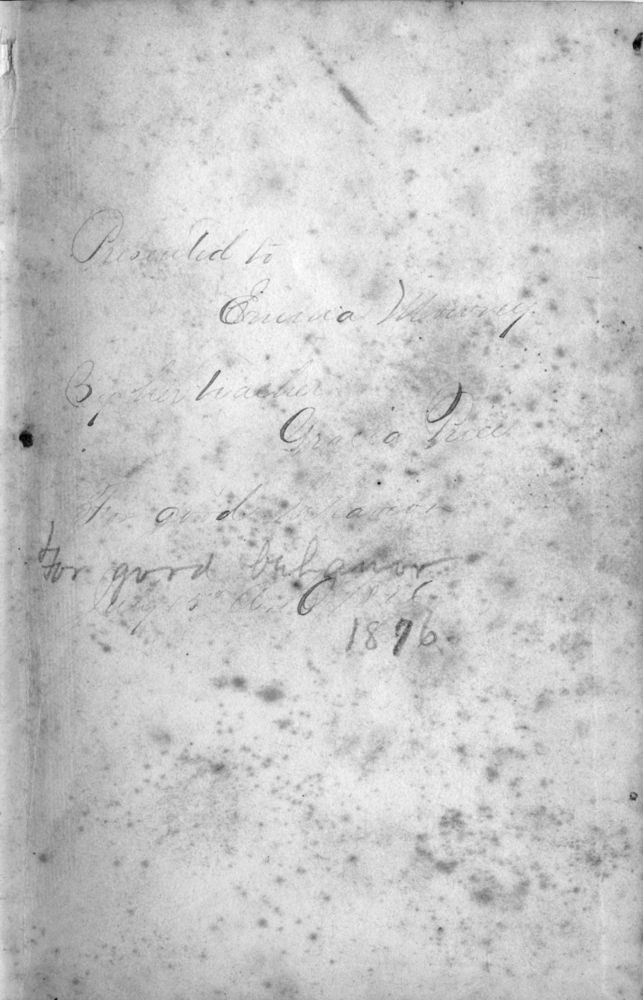 Presented to
Emma
By her teacher
Gracie Rice
For good behavior
For good behavior
1876